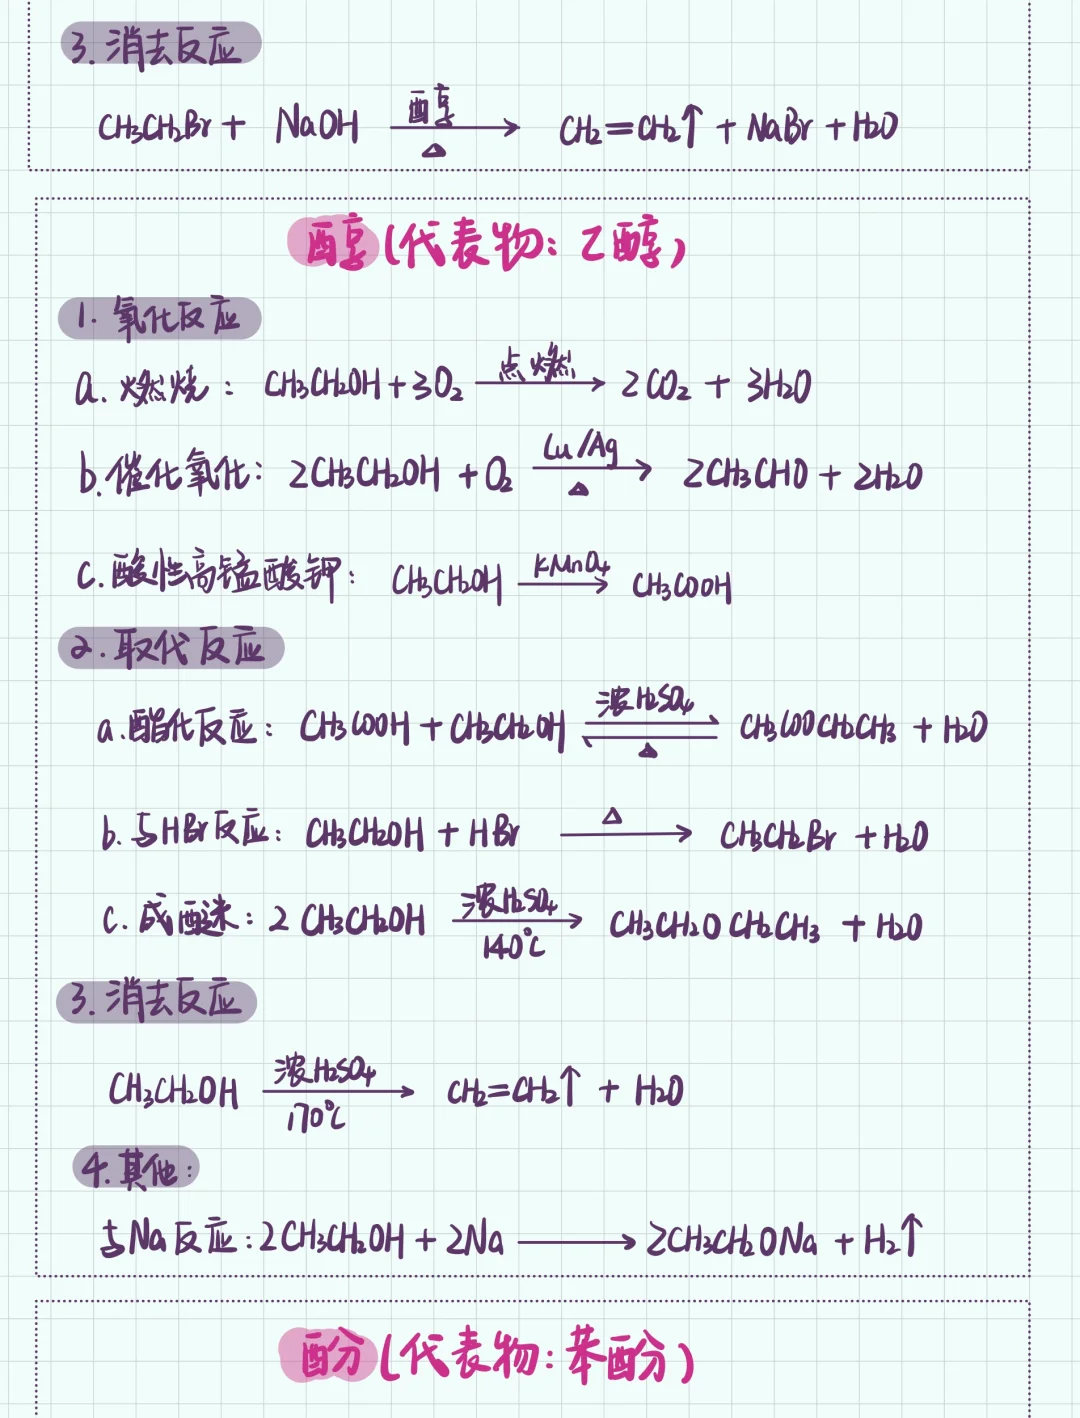 3.消去反应
CH3CH2Br + NaOH 醇 △ → CH2=CH2↑ + NaBr + H2O
醇(代表物：乙醇)
1.氧化反应
a.燃烧：CH3CH2OH + 3O2 点燃 → 2CO2 + 3H2O
b.催化氧化：2CH3CH2OH + O2 Cu/Ag △ → 2CH3CHO + 2H2O
c.酸性高锰酸钾：CH3CH2OH KMnO4 → CH3COOH
2.取代反应
a.酯化反应：CH3COOH + CH3CH2OH 浓H2SO4 △ ⇌ CH3COOCH2CH3 + H2O
b.与HBr反应：CH3CH2OH + HBr △ → CH3CH2Br + H2O
c.成醚：2CH3CH2OH 浓H2SO4 140℃ → CH3CH2OCH2CH3 + H2O
3.消去反应
CH3CH2OH 浓H2SO4 170℃ → CH2=CH2↑ + H2O
4.其他：
与Na反应：2CH3CH2OH + 2Na → 2CH3CH2ONa + H2↑
酚(代表物：苯酚)